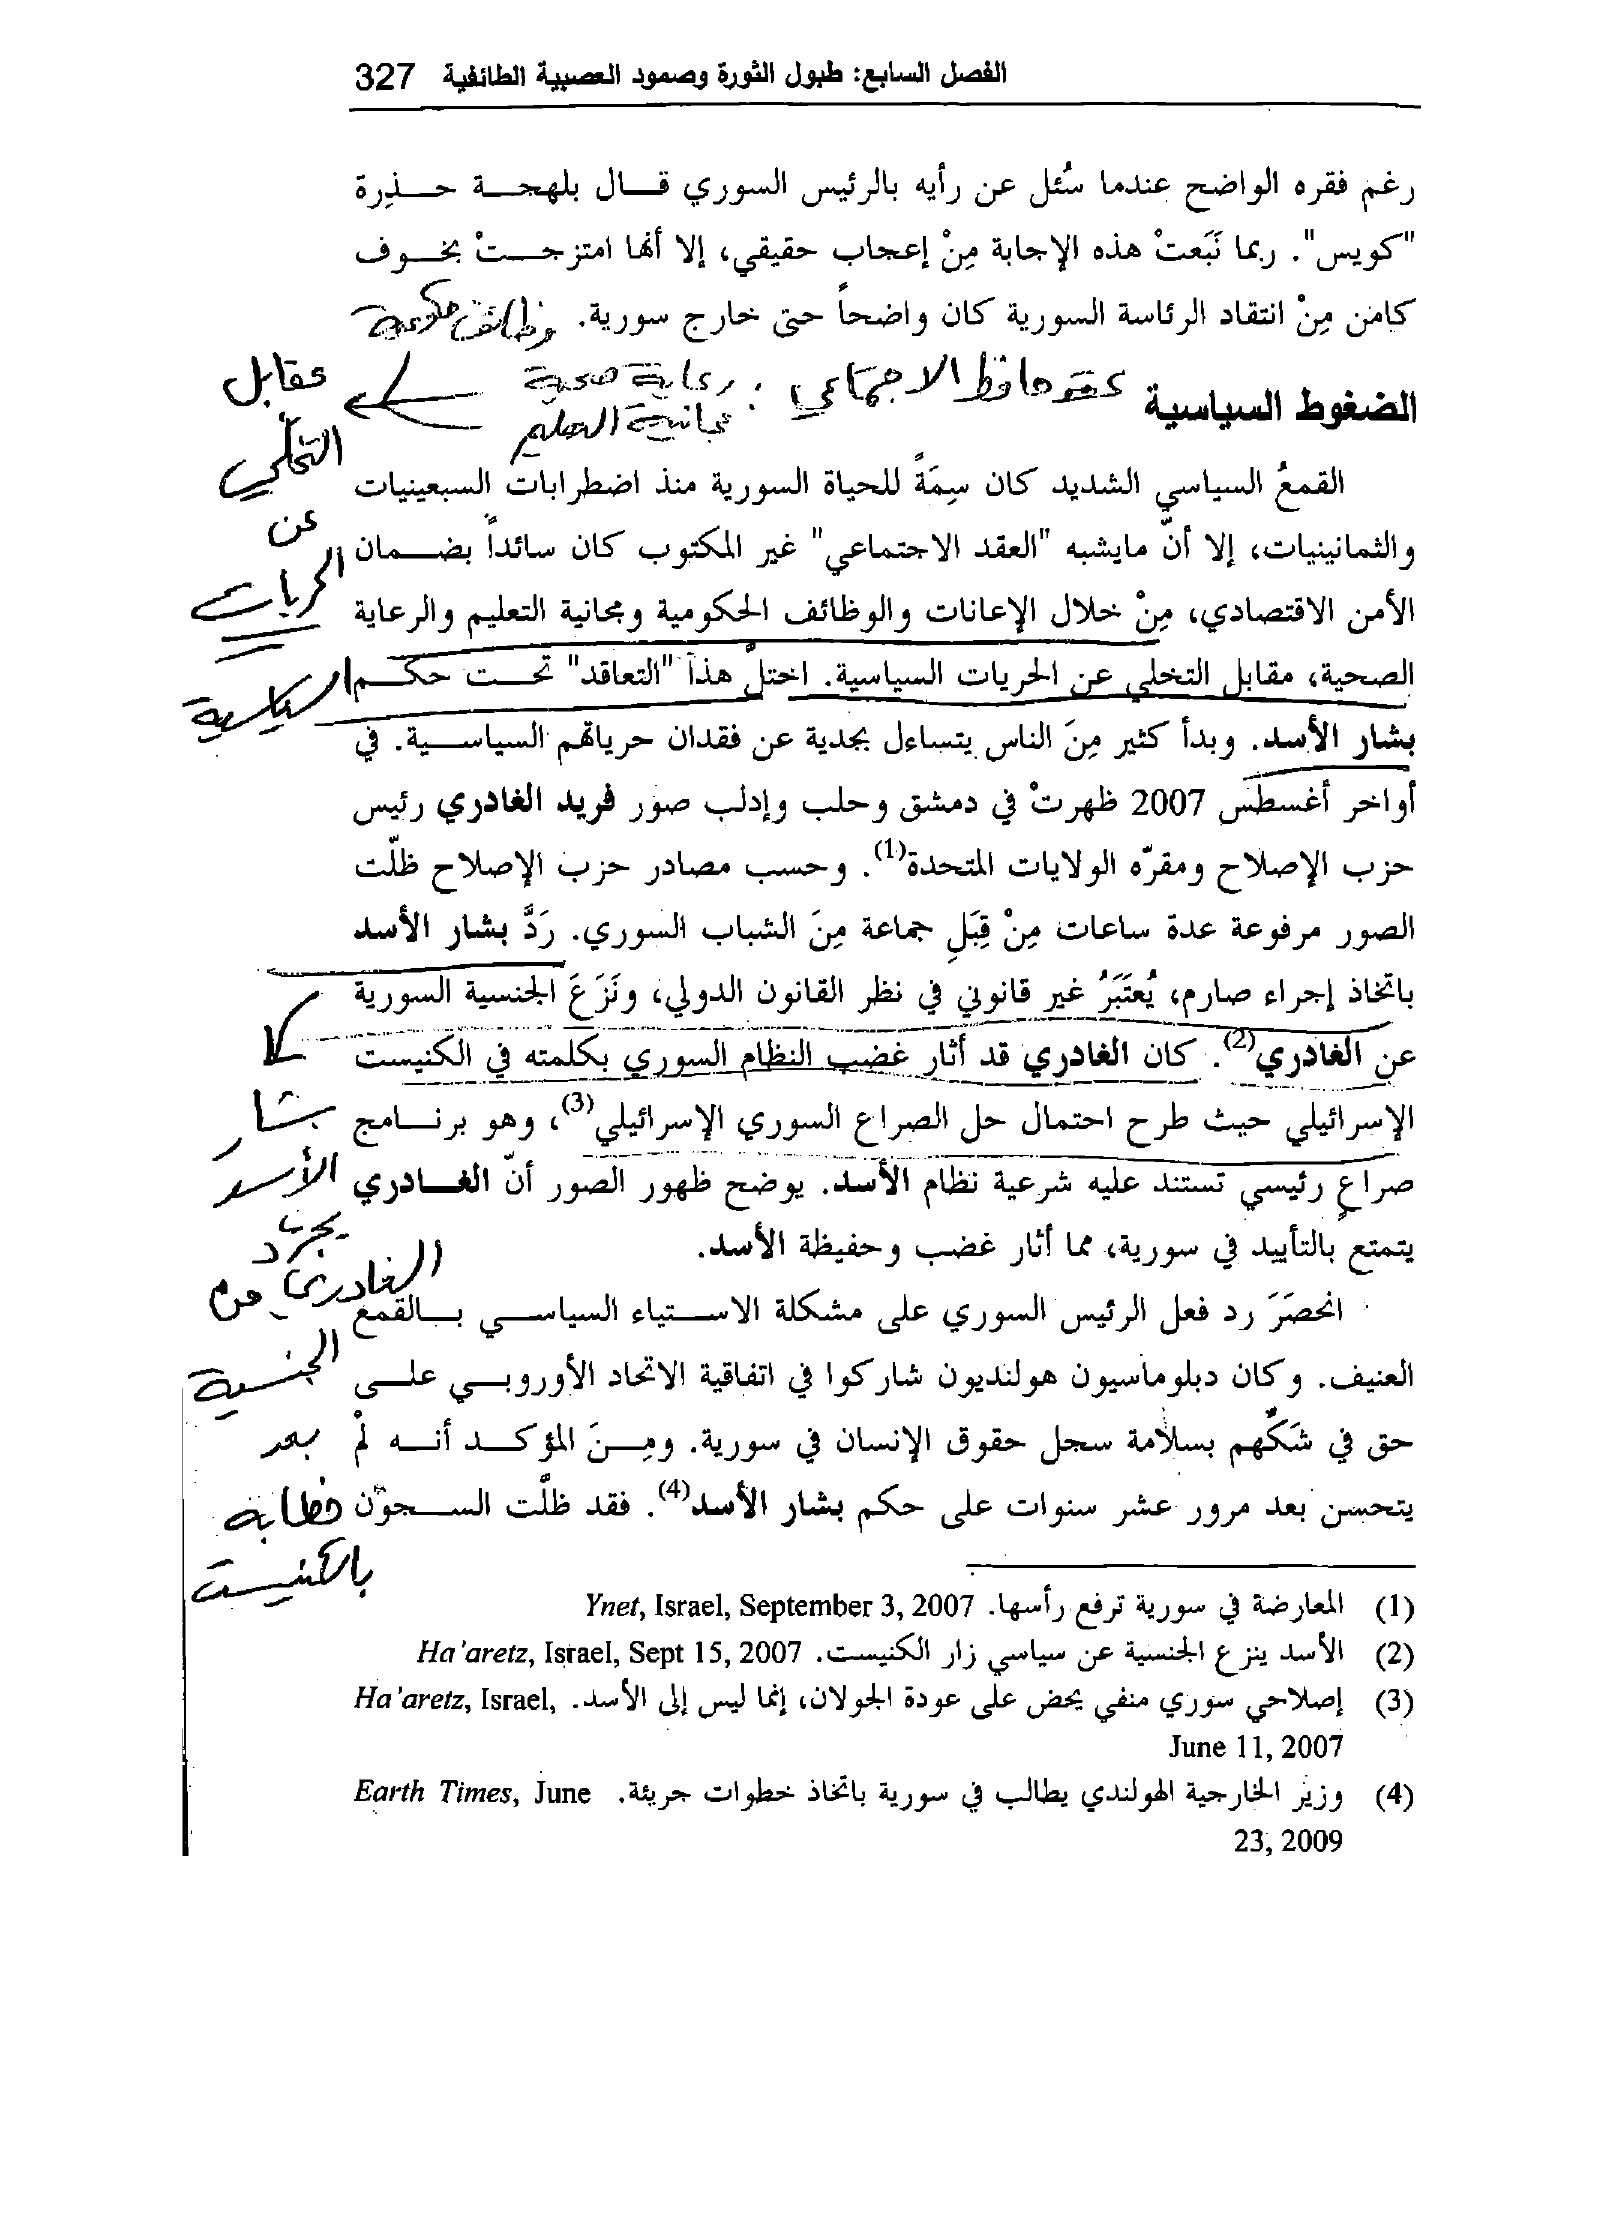 الفصل السابع: طبول الثورة وصمود العصبية الطائفية 327
رغم فقره الواضح عندما سُئل عن رأيه بالرئيس السوري قـــال بلهجـــة حـــذِرة
"كويس". ربما نَبَعتْ هذه الإجابة مِنْ إعجاب حقيقي، إلا أنها امتزجـــتْ بخـــوف
كامن مِنْ انتقاد الرئاسة السورية كان واضحاً حتى خارج سورية.
وظائف حكومية
عقد حافظ الاجتماعي : رعاية صحية
مجانية التعليم
مقابل
التخلّي
عن
الحريات
السياسية
الضغوط السياسية
القمعُ السياسي الشديد كان سِمَةً للحياة السورية منذ اضطرابات السبعينيات
والثمانينيات، إلا أنّ مايشبه "العقد الاجتماعي" غير المكتوب كان سائداً بضمـــان
الأمن الاقتصادي، مِنْ خلال الإعانات والوظائف الحكومية ومجانية التعليم والرعاية
الصحية، مقابل التخلي عن الحريات السياسية. اختلّ هذا "التعاقد" تحـــت حكـــم
بشار الأسد. وبدأ كثير مِنَ الناس يتساءل بجدية عن فقدان حرياتهم السياســـية. في
أواخر أغسطس 2007 ظهرتْ في دمشق وحلب وإدلب صور فريد الغادري رئيس
حزب الإصلاح ومقرّه الولايات المتحدة(1). وحسب مصادر حزب الإصلاح ظلّت
الصور مرفوعة عدة ساعات مِنْ قِبَلِ جماعة مِنَ الشباب السوري. رَدَّ بشار الأسد
باتخاذ إجراء صارم، يُعتَبَرُ غير قانوني في نظر القانون الدولي، ونَزَعَ الجنسية السورية
عن الغادري(2). كان الغادري قد أثار غضب النظام السوري بكلمته في الكنيست
الإسرائيلي حيث طرح احتمال حل الصراع السوري الإسرائيلي(3)، وهو برنـــامج
صراعٍ رئيسي تستند عليه شرعية نظام الأسد. يوضح ظهور الصور أنّ الغـــادري
يتمتع بالتأييد في سورية، مما أثار غضب وحفيظة الأسد.
انحصَرَ رد فعل الرئيس السوري على مشكلة الاســـتياء السياســـي بـــالقمع
العنيف. وكان دبلوماسيون هولنديون شاركوا في اتفاقية الاتحاد الأوروبـــي علـــى
حق في شَكِّهم بسلامة سجل حقوق الإنسان في سورية. ومِـــنَ المؤكـــد أنـــه لمْ
يتحسن بعد مرور عشر سنوات على حكم بشار الأسد(4). فقد ظلّت الســـجون
بشار
الأسد
يجرّد
الغادري من
الجنسية
بعد
خطابه
بالكنيست
(1) المعارضة في سورية ترفع رأسها. Ynet, Israel, September 3, 2007
(2) الأسد ينزع الجنسية عن سياسي زار الكنيست. Ha'aretz, Israel, Sept 15, 2007
(3) إصلاحي سوري منفي يحض على عودة الجولان، إنما ليس إلى الأسد. Ha'aretz, Israel,
June 11, 2007
(4) وزير الخارجية الهولندي يطالب في سورية باتخاذ خطوات جريئة. Earth Times, June
23, 2009